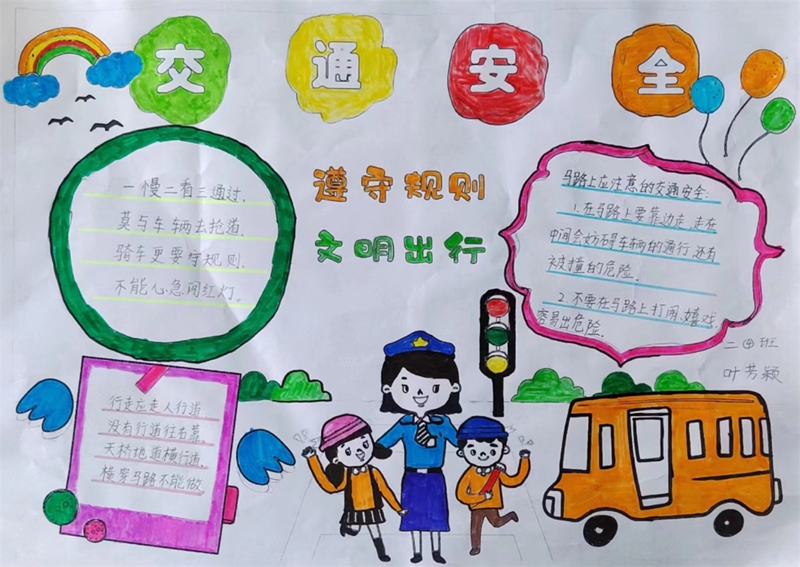 交通安全
遵守规则
文明出行
一慢二看三通过,
莫与车辆去抢道.
骑车更要守规则.
不能心急闯红灯.
马路上应注意的交通安全:
1.在马路上要靠边走,走在
中间会妨碍车辆的通行,还有
被撞的危险.
2.不要在马路上打闹、嬉戏,
容易出危险.
二④班
叶芳颖
行走应走人行道
没有行道往右靠.
天桥地道横行道,
横穿马路不能做